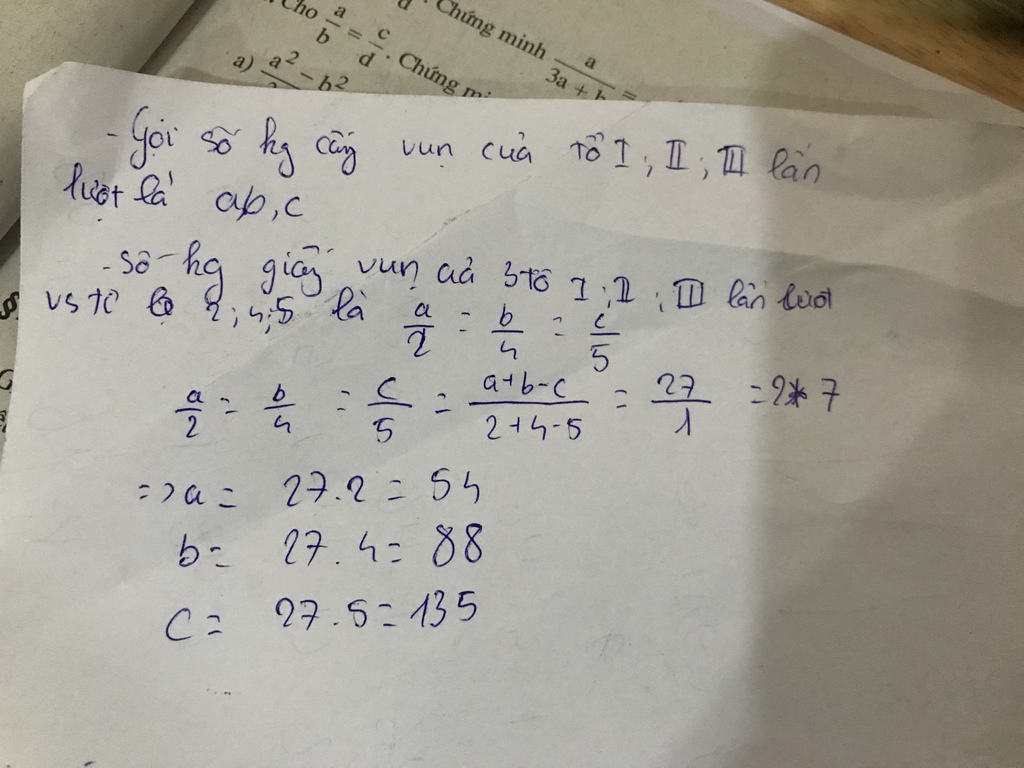 Cho a/b = c/d. Chứng minh a/(3a + b) =
a) a² - b²
- Gọi số kg giấy vụn của tổ I ; II ; III lần
lượt là a,b,c
- Số kg giấy vụn của 3 tổ I ; II ; III lần lượt
vs tỉ lệ 2 ; 4 ; 5 là a/2 = b/4 = c/5
a/2 = b/4 = c/5 = (a+b-c)/(2+4-5) = 27/1 = 27
=> a = 27.2 = 54
b = 27.4 = 88
c = 27.5 = 135